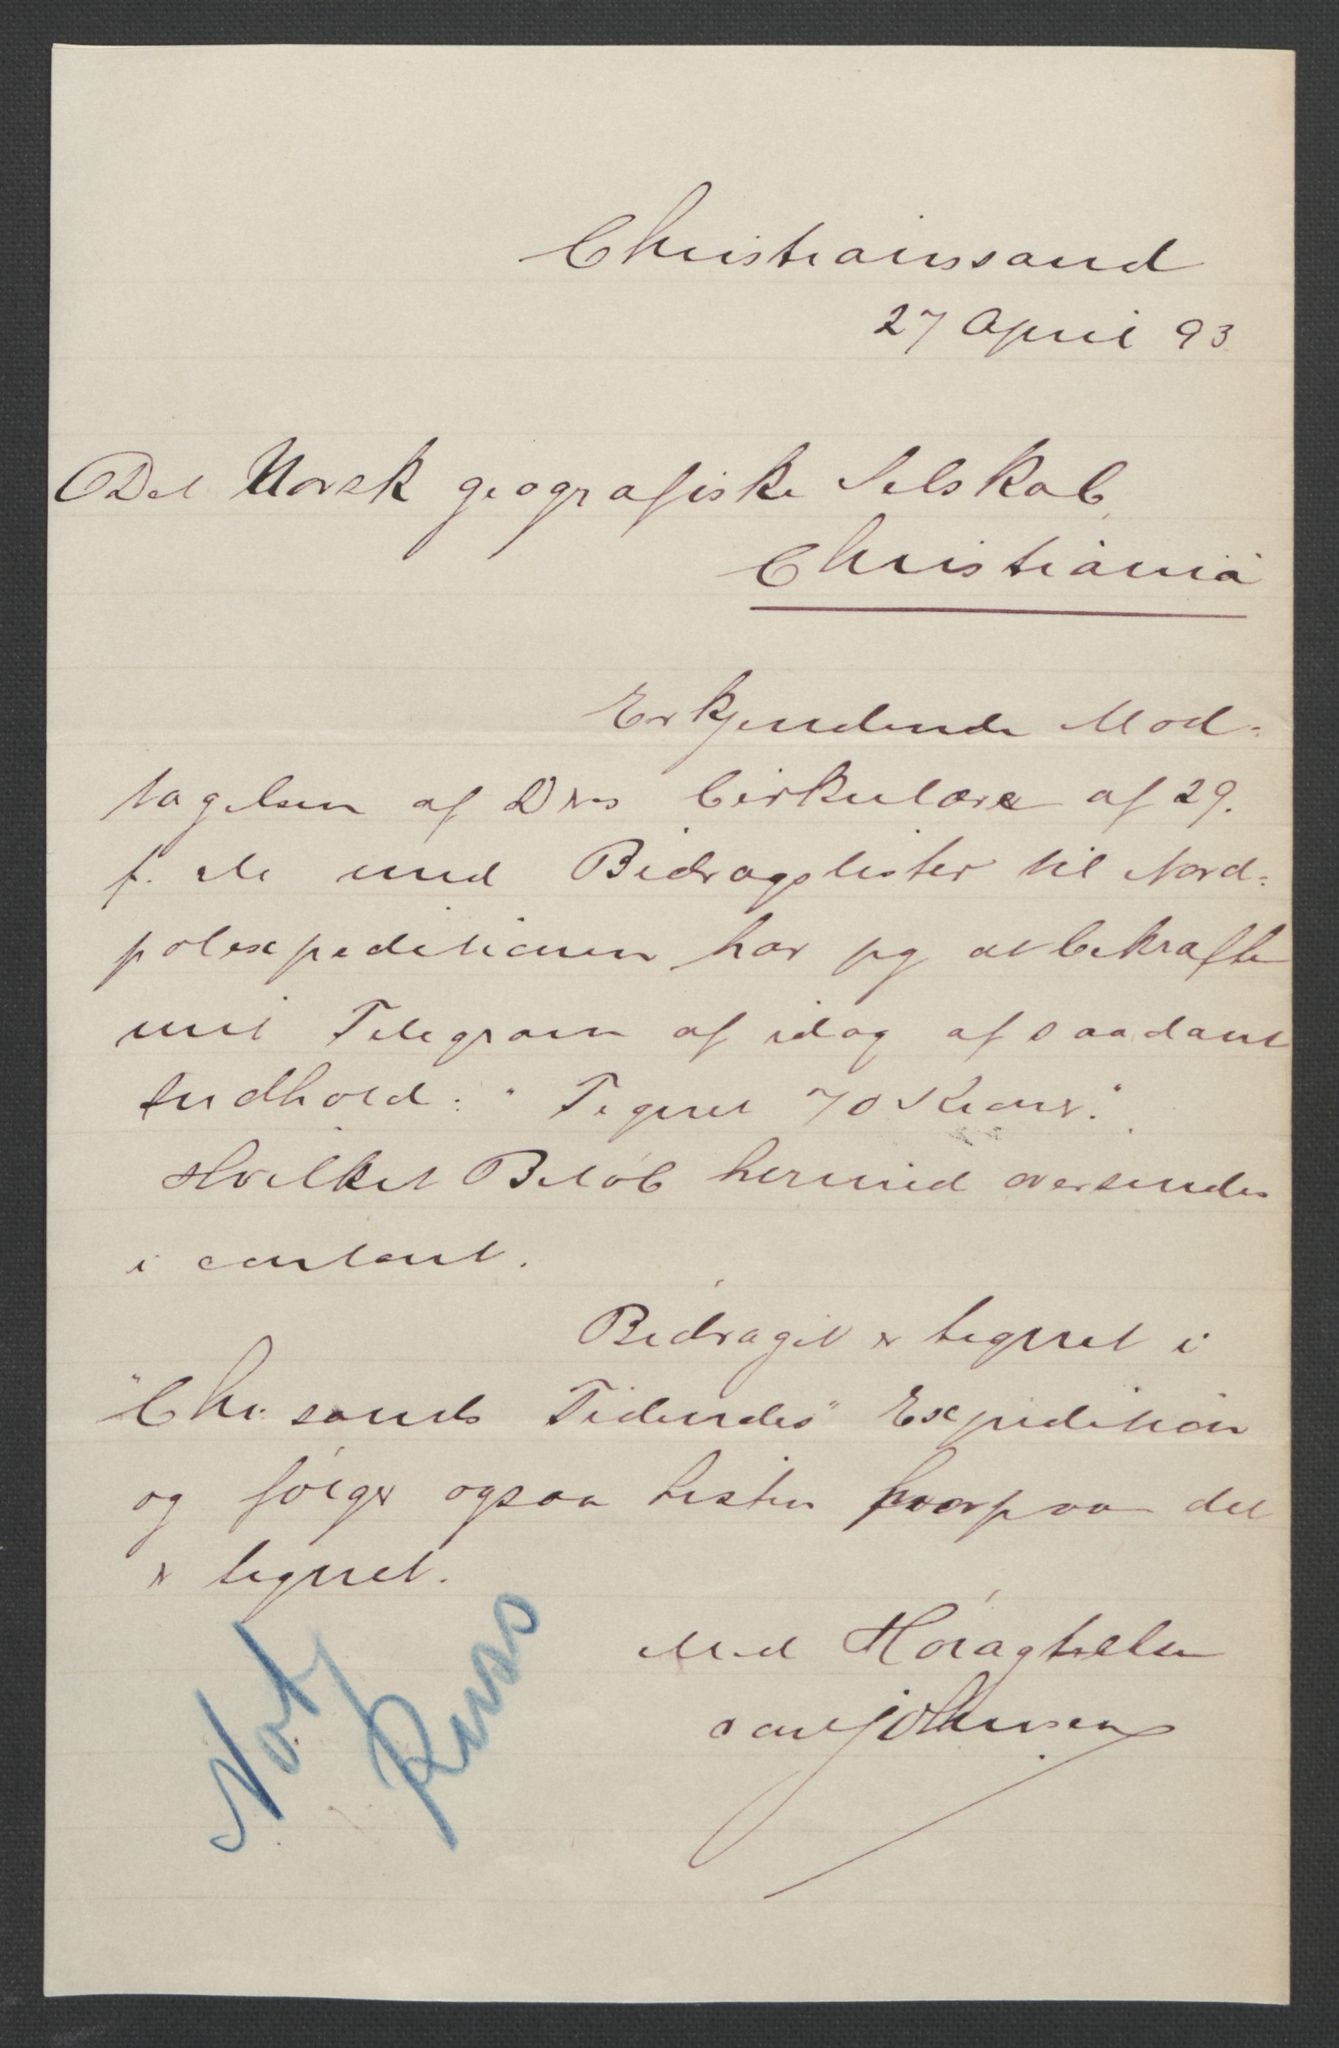 Christianssand
27 April 93
Det Norsk geografiske Selskab,
Christiania
Erkjendende Mod-
tagelsen af Deres Cirkulære af 29.
f. M. med Bidragslister til Nord-
polexpeditionen har jeg at bekræfte
mit Telegram af idag af saadant
Indhold: "Tegnet 70 Kroner."
Hvilket Beløb hermed oversendes
i contant.
Bidraget er tegnet i
"Chr.sands Tidendes" Expedition
og følger ogsaa Listen hvorpaa det
er tegnet.
Med Høiagtelse
Johnsen
Not